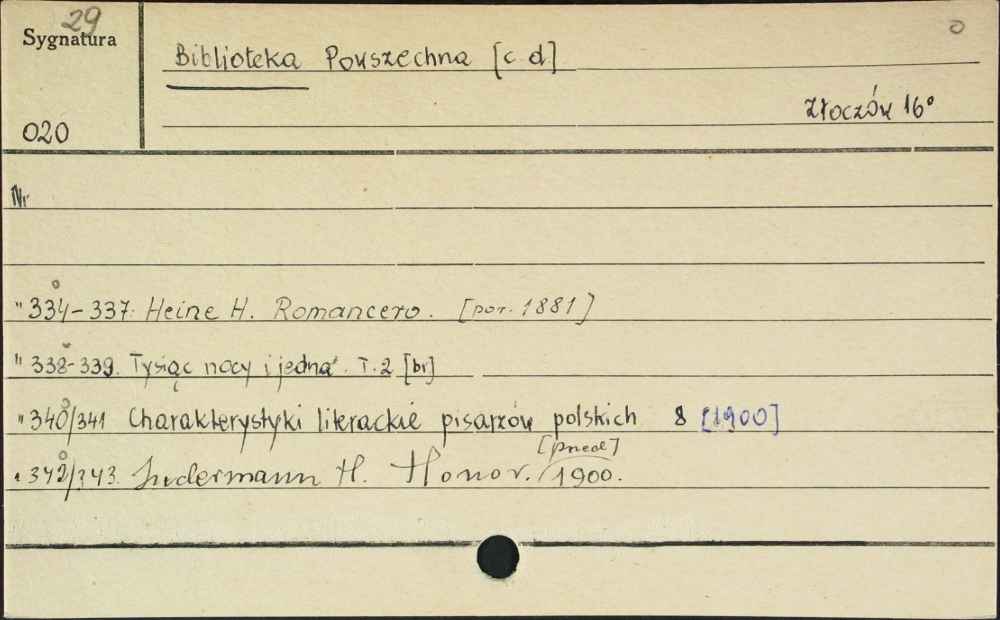 29
Sygnatura
020
Bibljoteka Powszechna [c d]
Złoczów 16°
Nr
" 334-337. Heine H. Romancero. [por. 1881]
" 338-339. Tysiąc nocy i jedna". T.2 [br]
" 340/341 Charakterystyki literackie pisarzów polskich 8 [1900]
[przed]
" 342/343. Sudermann H. Honor. 1900.